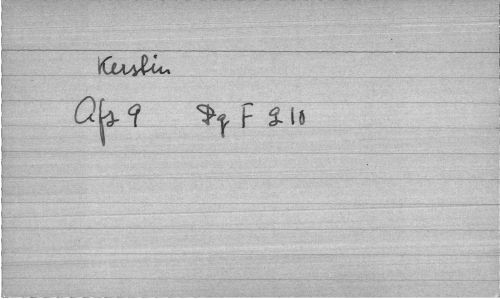 Kerstin
Afs 9 Pg F 10